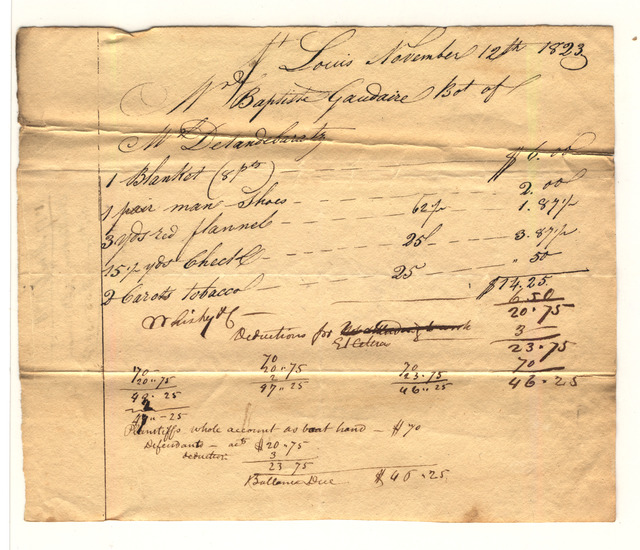 St Louis November 12th 1823
Mr Baptiste Gaudaire Bot of
M Delandebaratz
1 Blanket (8 pts) $6.00
1 pair man Shoes 2.00
3 yds red flannel 62½ 1.87½
15½ yds Check 25 3.87½
2 Carots tobacco 25 " 50
$14.25
Whisky &c 6.50
20.75
Deductions for
Et Cetera 3
23.75
70
46.25
70 70 70
20"75 20"75 23.75
49.25 2 46"25
2 47"25
47"25
Plaintiffs whole account as boat hand - $70
Defendants - acts $20.75
deduction 3
23 75
Ballance Due $46.25